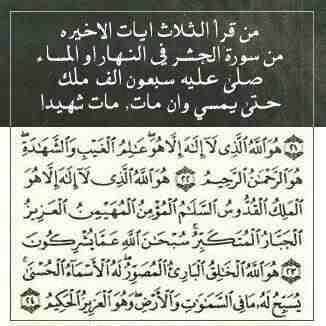 من قرأ الثلاث ايات الاخيره
من سورة الحشر في النهار او المساء
صلى عليه سبعون الف ملك
حتى يمسي وان مات, مات شهيدا
٢١ هُوَ اللَّهُ الَّذِي لَا إِلَٰهَ إِلَّا هُوَ عَالِمُ الْغَيْبِ وَالشَّهَادَةِ
هُوَ الرَّحْمَٰنُ الرَّحِيمُ ٢٢ هُوَ اللَّهُ الَّذِي لَا إِلَٰهَ إِلَّا هُوَ
الْمَلِكُ الْقُدُّوسُ السَّلَامُ الْمُؤْمِنُ الْمُهَيْمِنُ الْعَزِيزُ
الْجَبَّارُ الْمُتَكَبِّرُ سُبْحَانَ اللَّهِ عَمَّا يُشْرِكُونَ
٢٣ هُوَ اللَّهُ الْخَالِقُ الْبَارِئُ الْمُصَوِّرُ لَهُ الْأَسْمَاءُ الْحُسْنَىٰ
يُسَبِّحُ لَهُ مَا فِي السَّمَاوَاتِ وَالْأَرْضِ وَهُوَ الْعَزِيزُ الْحَكِيمُ ٢٤